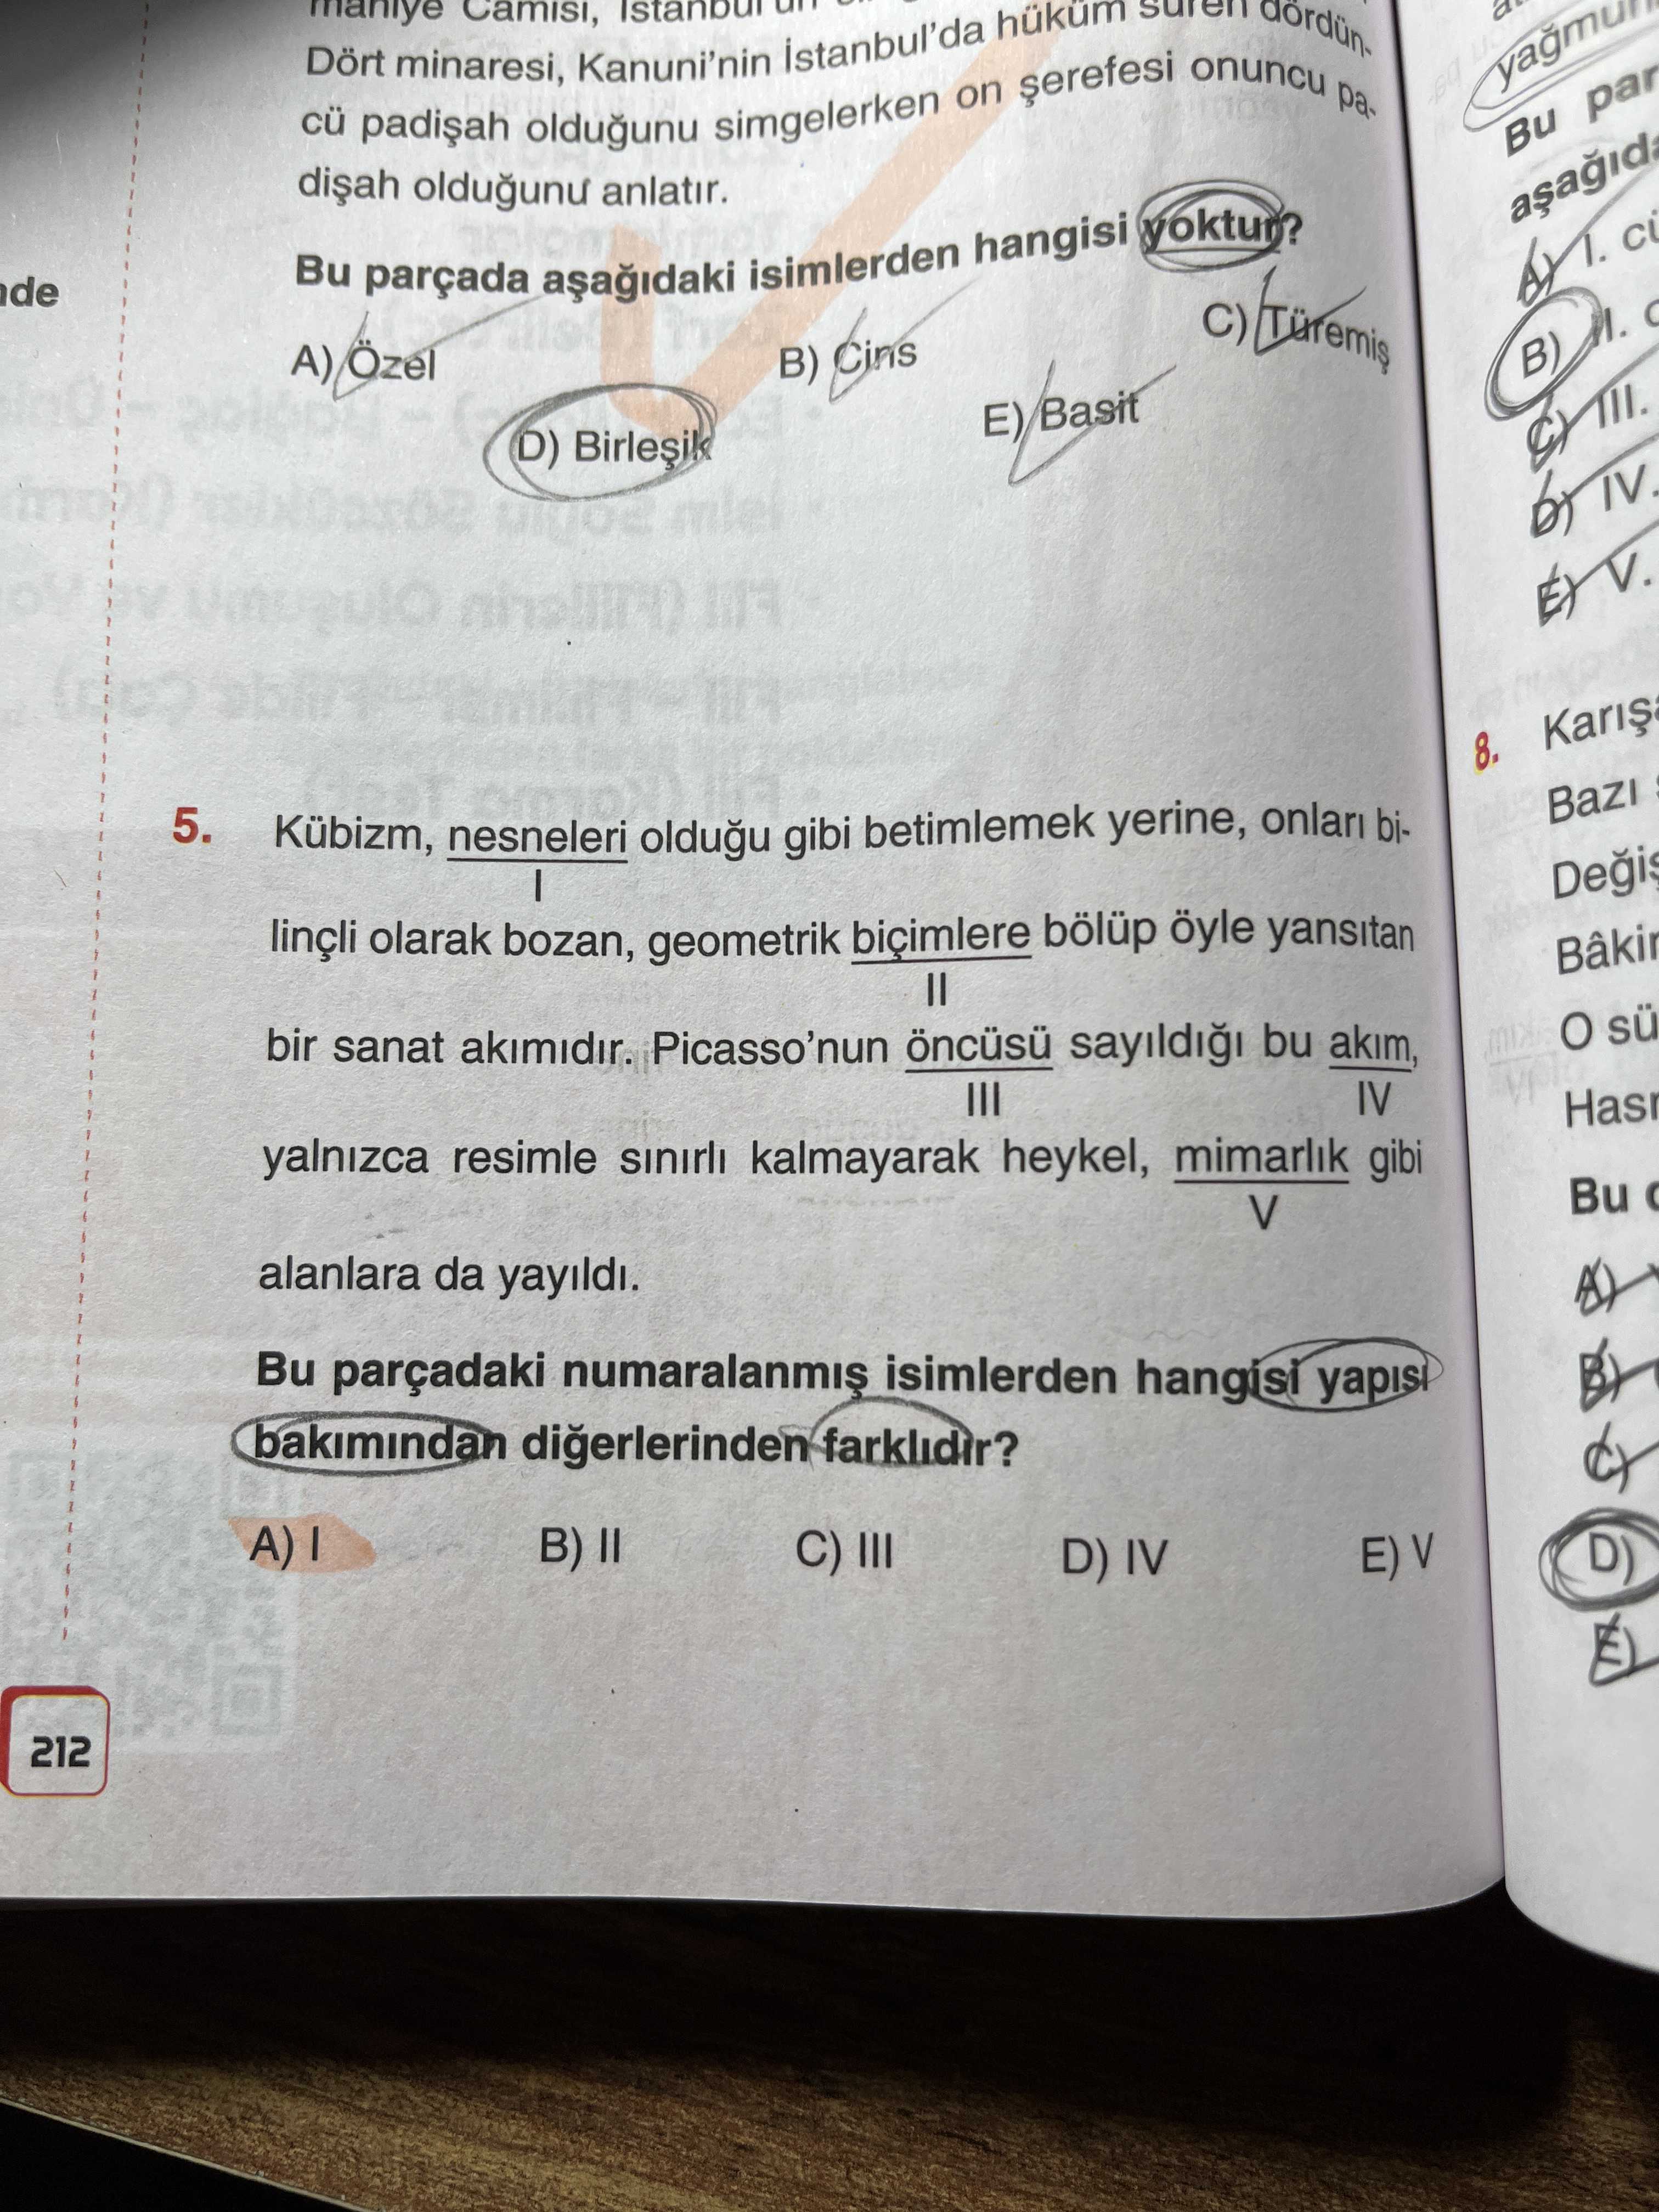 maniye Camisi, İstanbul'un
Dört minaresi, Kanuni'nin İstanbul'da hüküm süren dördün-
cü padişah olduğunu simgelerken on şerefesi onuncu pa-
dişah olduğunu anlatır.
Bu parçada aşağıdaki isimlerden hangisi yoktur?
A) Özel
B) Cins
C) Türemiş
D) Birleşik
E) Basit
5. Kübizm, nesneleri olduğu gibi betimlemek yerine, onları bi-
I
linçli olarak bozan, geometrik biçimlere bölüp öyle yansıtan
II
bir sanat akımıdır. Picasso'nun öncüsü sayıldığı bu akım,
III IV
yalnızca resimle sınırlı kalmayarak heykel, mimarlık gibi
V
alanlara da yayıldı.
Bu parçadaki numaralanmış isimlerden hangisi yapısı
bakımından diğerlerinden farklıdır?
A) I B) II C) III D) IV E) V
212
Bu
A) I.
B) II.
C) III.
D) IV.
E) V.
8.
Bazı
O
Bu
A)
B)
C)
D)
E)